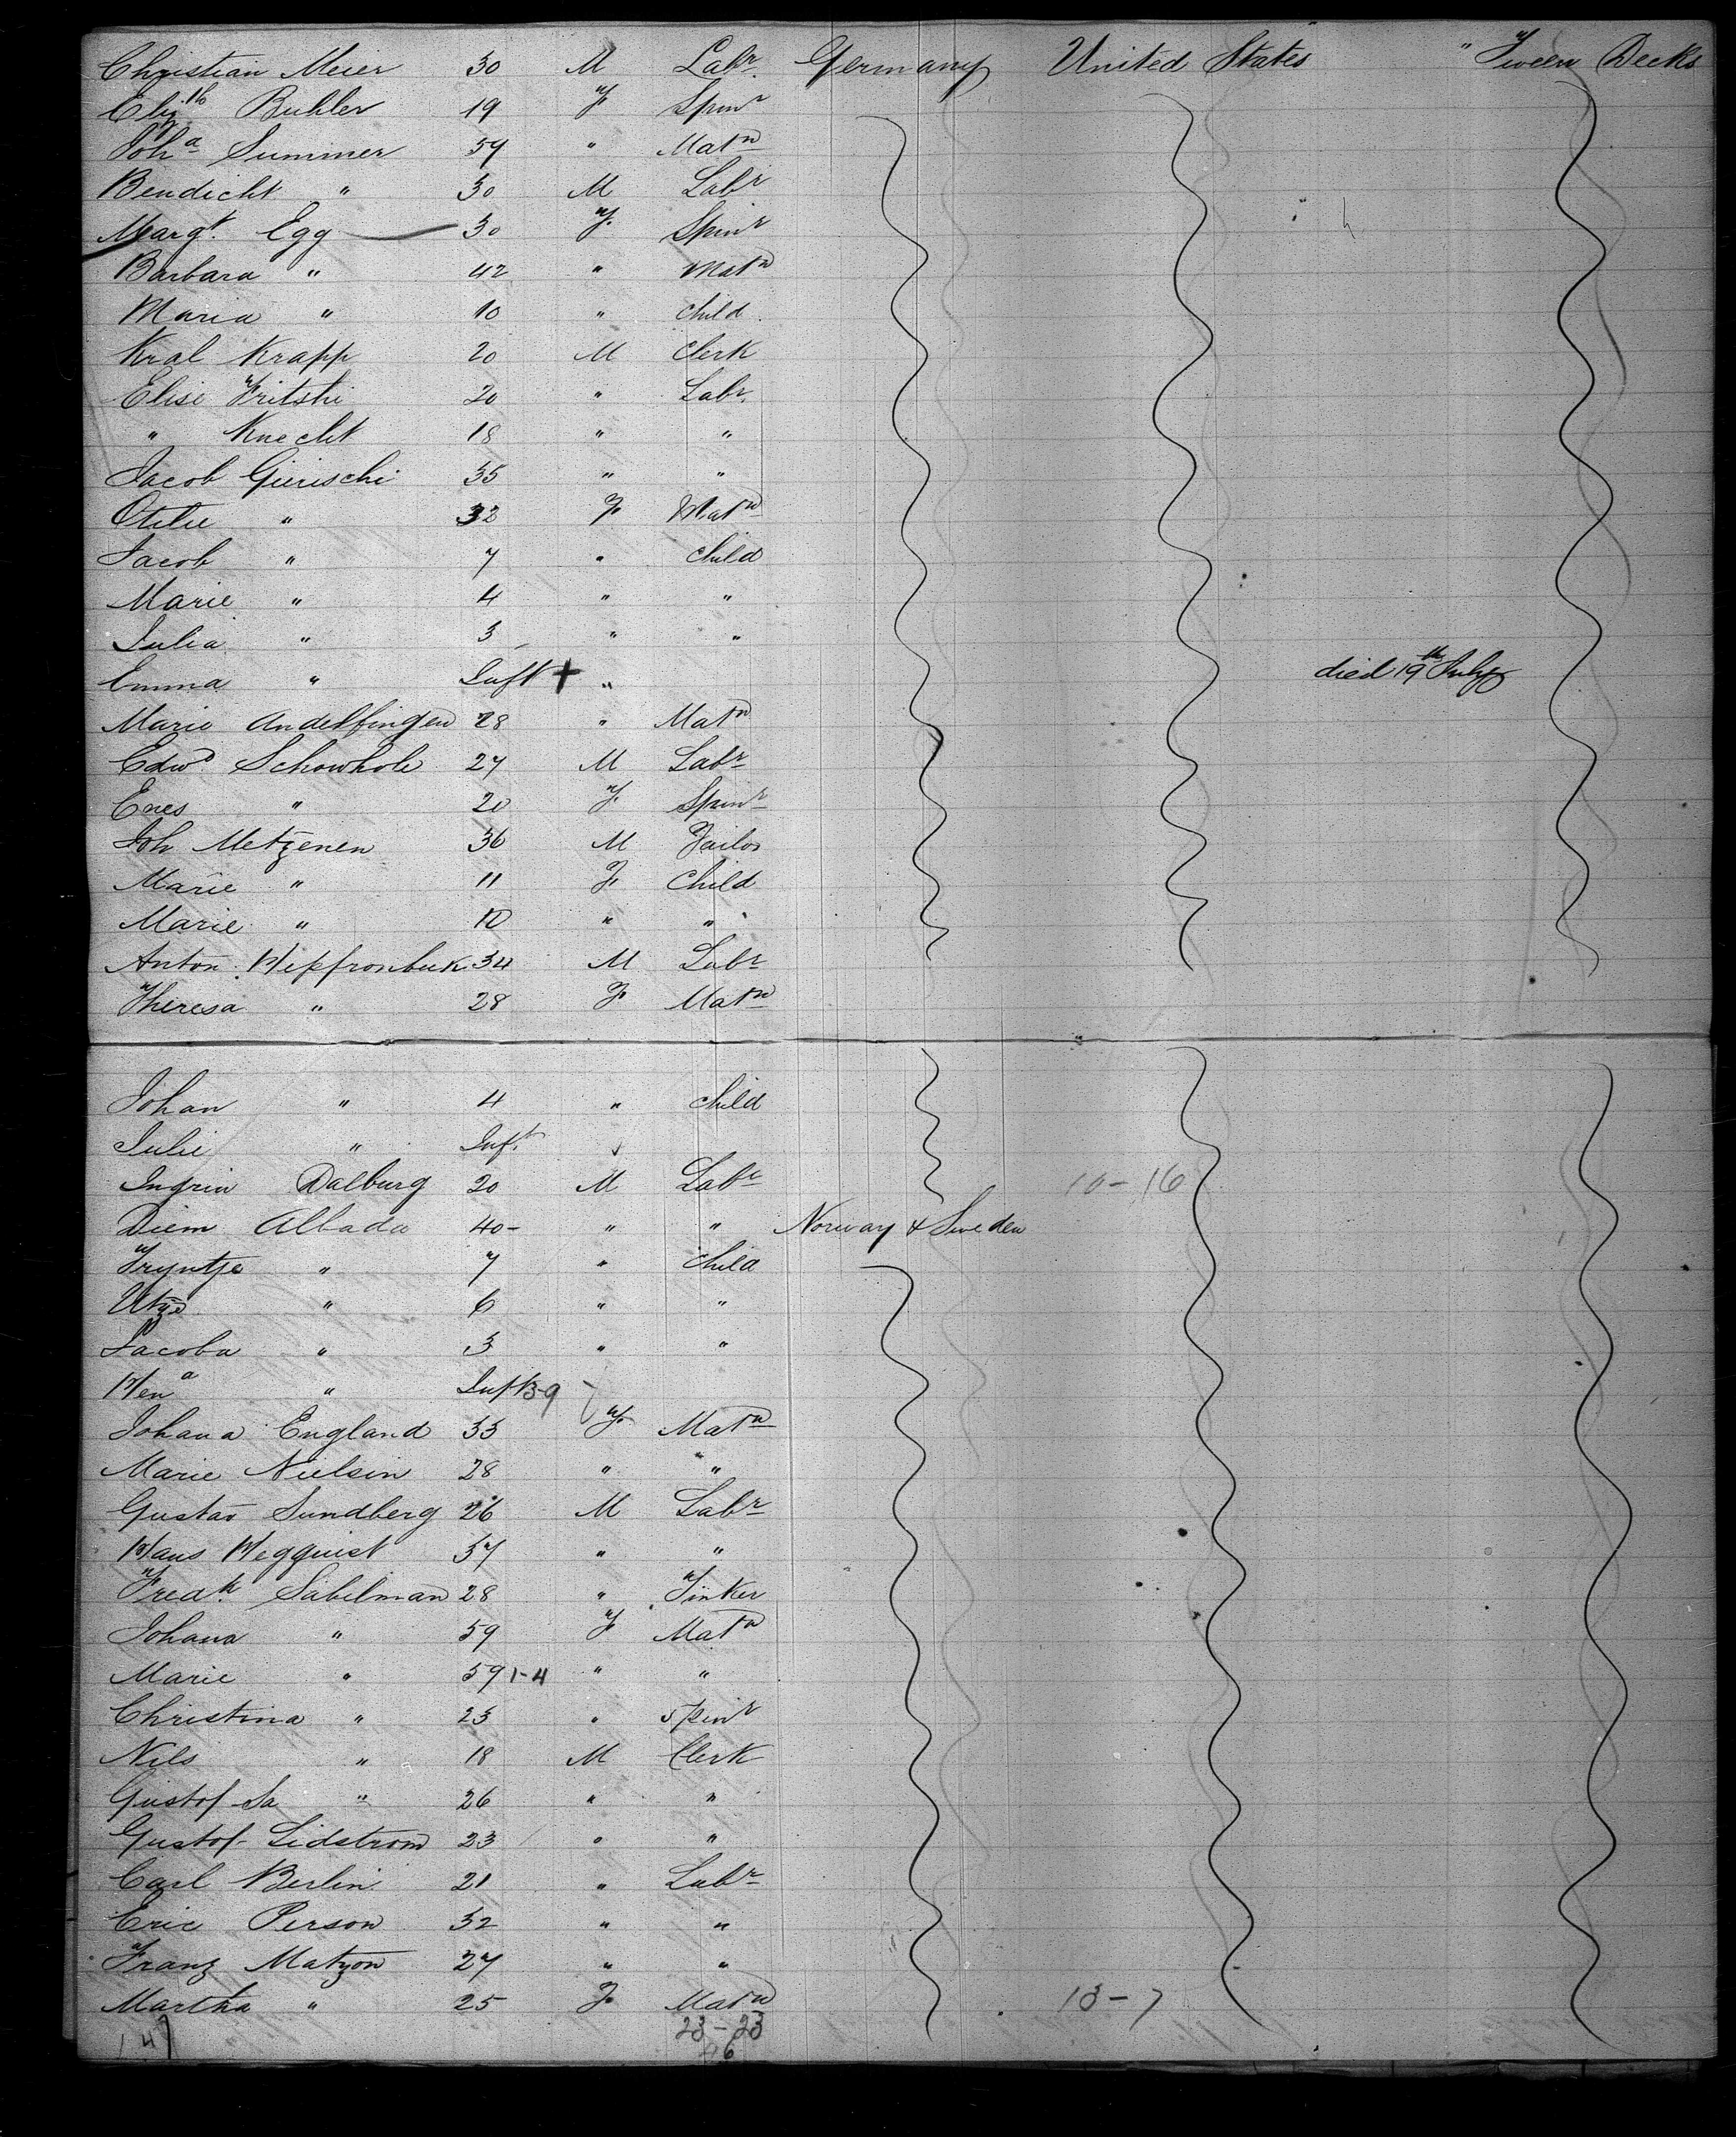 Christian Meier 30 M Labr. Germany United States " Tween Decks
Elizth Buhler 19 F. Spinr
Joha Summer 59 " Matn
Bendicht " 30 M Labr
Margt. Egg 30 F. Spinr
Barbara " 42 " Matn
Maria " 10 " Child
Kral Krapp 20 M Clerk
Elise Fritshi 20 " Labr.
" Knecht 18 " "
Jacob Gierischi 35 " "
Otilie " 32 F Matn
Jacob " 7 " Child
Marie " 4 " "
Julia " 3 " "
Emma " Inft + " died 19th July
Marie Andelfingen 28 " Matn
Edwd. Schowhole 27 M Labr
Enes " 20 F. Spinr
Joh Metzenen 36 M Tailor
Marie " 11 F. Child
Marie " 10 " "
Anton 34 M Labr
Theresa " 28 F Matn
Johan " 4 " Child
Julie " Inft. "
Ingrin Dalburg 20 M Labr 10-16
Diem Albada 40- " " Norway & Sweden
Tryntje " 7 " Child
" 6 " "
Jacoba " 3 " "
Hena " Inft 3-9
Johana England 33 F. Matn
Marie Nielsin 28 " "
Gustav Sundberg 26 M Labr
Hans Hegquist 37 " "
Fredk. Sabelman 28 " Tinker
Johana " 59 F Matn
Marie " 59 1-4 " "
Christina " 23 " Spinr
Nils " 18 M Clerk
Gustof Sa " 26 " "
Gustof Lidstrom 23 " "
Carl Berlin 21 " Labr
Eric Person 32 " "
Franz Matzon 27 " "
Martha " 25 F Matn 13-7
147 23-23
46